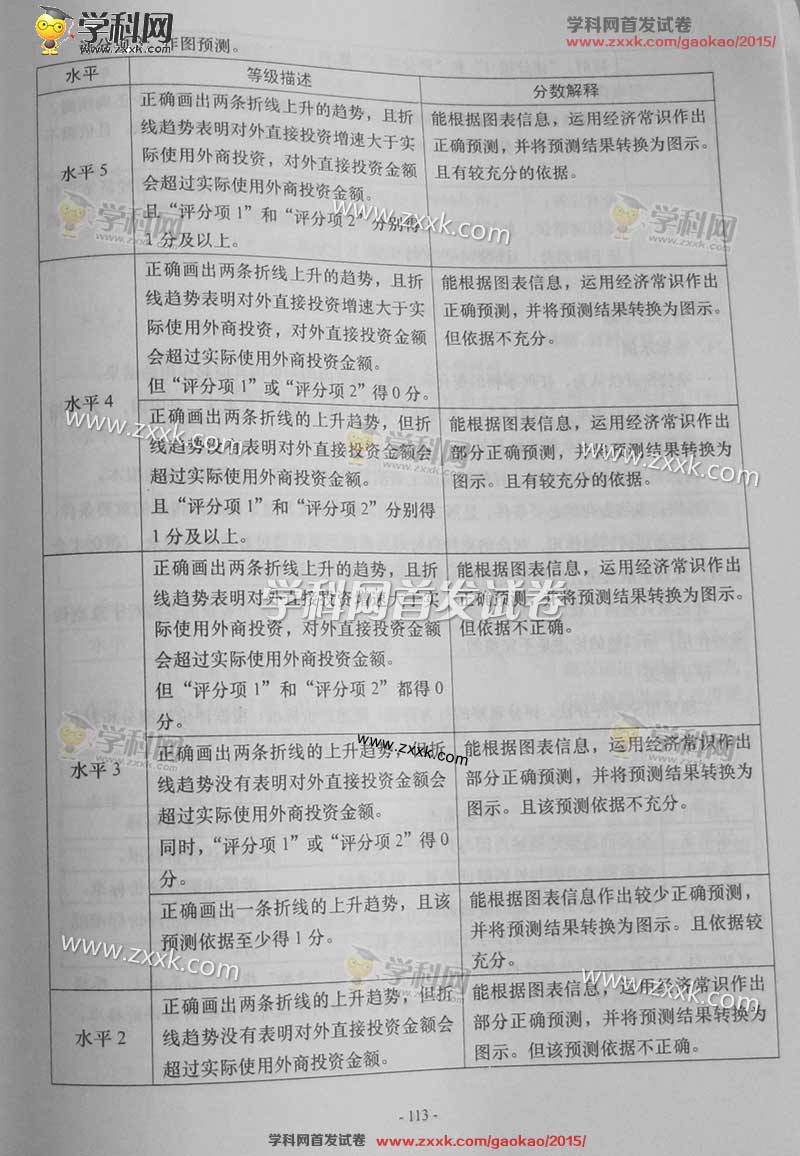 学科网
www.zxxk.com
学科网首发试卷
www.zxxk.com/gaokao/2015/
作图预测。
水平
等级描述
分数解释
水平 5
正确画出两条折线上升的趋势，且折
线趋势表明对外直接投资增速大于实
际使用外商投资，对外直接投资金额
会超过实际使用外商投资金额。
且“评分项 1”和“评分项 2”分别得
1 分及以上。
能根据图表信息，运用经济常识作出
正确预测，并将预测结果转换为图示。
且有较充分的依据。
学科网
www.zxxk.com
www.zxxk.com
学科网
www.zxxk.com
水平 4
正确画出两条折线上升的趋势，且折
线趋势表明对外直接投资增速大于实
际使用外商投资，对外直接投资金额
会超过实际使用外商投资金额。
但“评分项 1”或“评分项 2”得 0 分。
能根据图表信息，运用经济常识作出
正确预测，并将预测结果转换为图示。
但依据不充分。
正确画出两条折线的上升趋势，但折
线趋势没有表明对外直接投资金额会
超过实际使用外商投资金额。
且“评分项 1”和“评分项 2”分别得
1 分及以上。
能根据图表信息，运用经济常识作出
部分正确预测，并将预测结果转换为
图示。且有较充分的依据。
www.zxxk.com
学科网
www.zxxk.com
www.zxxk.com
水平 3
正确画出两条折线上升的趋势，且折
线趋势表明对外直接投资增速大于实
际使用外商投资，对外直接投资金额
会超过实际使用外商投资金额。
但“评分项 1”和“评分项 2”都得 0
分。
能根据图表信息，运用经济常识作出
正确预测，并将预测结果转换为图示。
但依据不正确。
学科网首发试卷
正确画出两条折线的上升趋势，但折
线趋势没有表明对外直接投资金额会
超过实际使用外商投资金额。
同时，“评分项 1”或“评分项 2”得 0
分。
能根据图表信息，运用经济常识作出
部分正确预测，并将预测结果转换为
图示。且该预测依据不充分。
学科网
www.zxxk.com
www.zxxk.com
学科网
www.zxxk.com
正确画出一条折线的上升趋势，且该
预测依据至少得 1 分。
能根据图表信息作出较少正确预测，
并将预测结果转换为图示。且依据较
充分。
www.zxxk.com
学科网
www.zxxk.com
www.zxxk.com
水平 2
正确画出两条折线的上升趋势，但折
线趋势没有表明对外直接投资金额会
超过实际使用外商投资金额。
能根据图表信息，运用经济常识作出
部分正确预测，并将预测结果转换为
图示。但该预测依据不正确。
- 113 -
学科网首发试卷
www.zxxk.com/gaokao/2015/